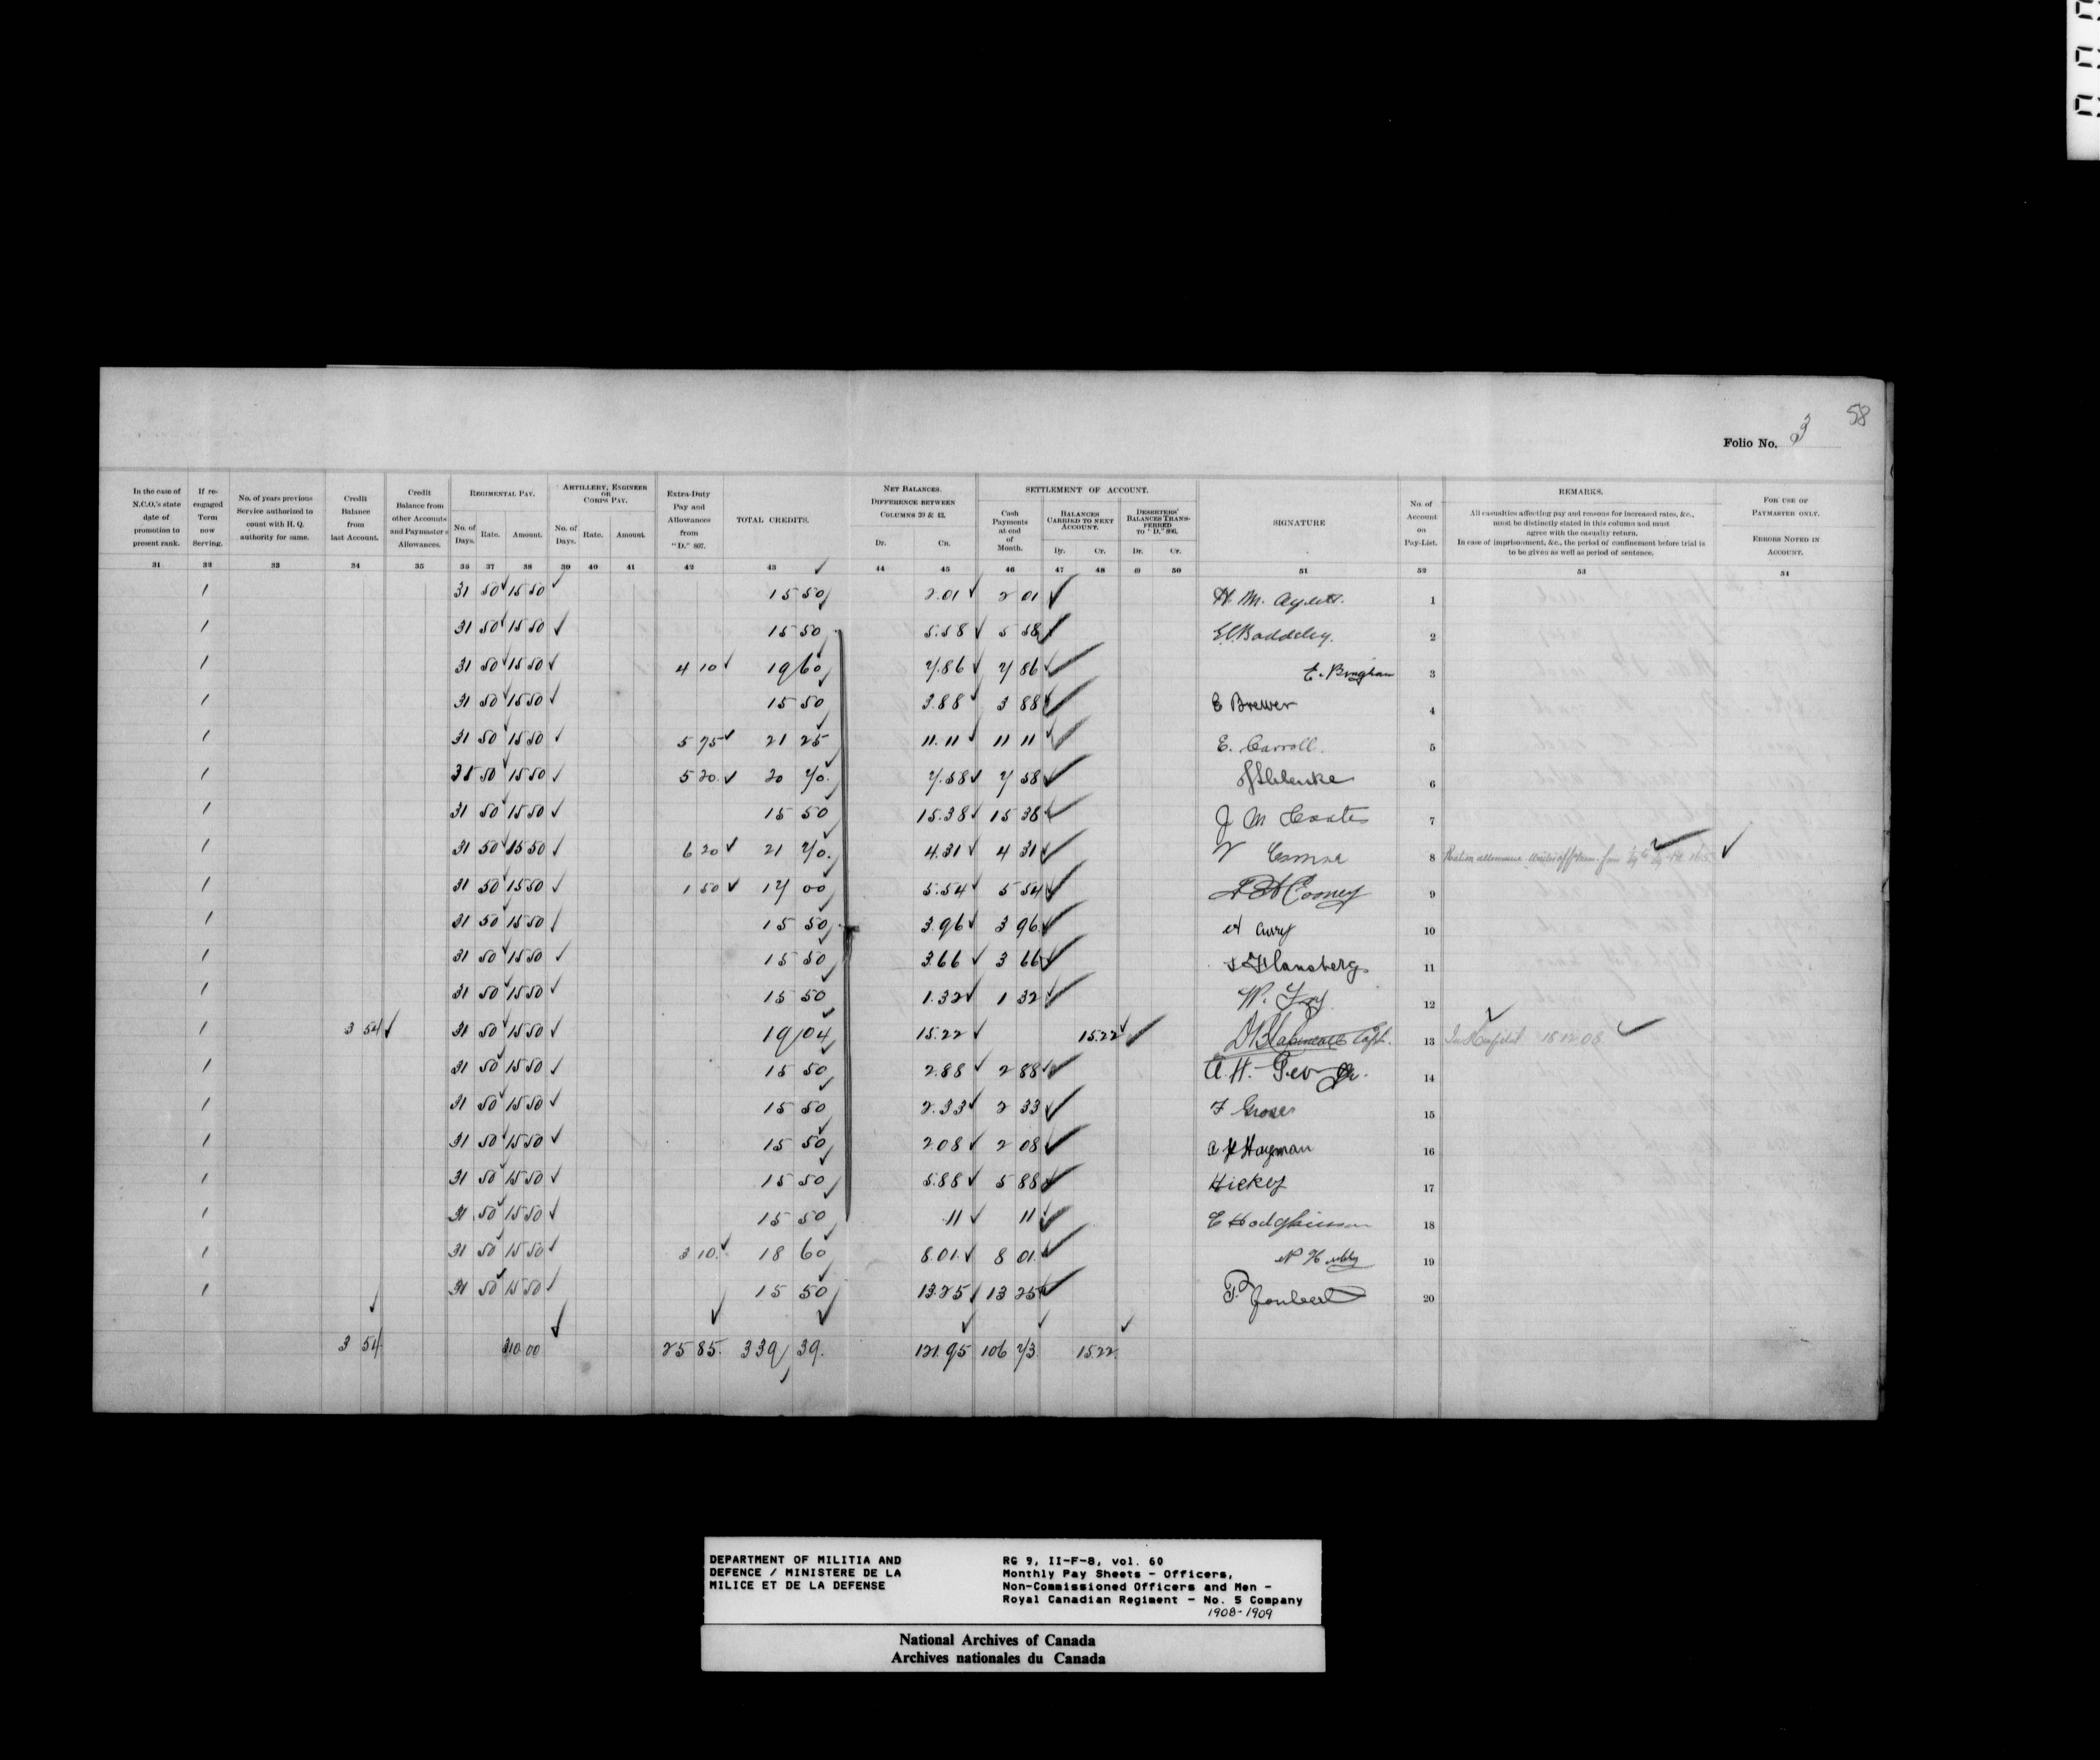 58
Folio No. 3
In the case of N.C.O.'s state date of promotion to present rank.
If re-engaged Term now Serving.
No. of years previous Service authorized to count with H. Q. authority for same.
Credit Balance from last Account.
Credit Balance from other Accounts and Paymaster's Allowances.
REGIMENTAL PAY.
No. of Days. Rate. Amount.
ARTILLERY, ENGINEER OR CORPS PAY.
No. of Days. Rate. Amount.
Extra-Duty Pay and Allowances from "D." 807.
TOTAL CREDITS.
NET BALANCES. DIFFERENCE BETWEEN COLUMNS 30 & 43.
Dr. Cr.
SETTLEMENT OF ACCOUNT.
Cash Payments at end of Month.
BALANCES CARRIED TO NEXT ACCOUNT.
Dr. Cr.
DESERTERS' BALANCES TRANSFERRED TO "D." 806.
Dr. Cr.
SIGNATURE
No. of Account on Pay-List.
REMARKS.
All casualties affecting pay and reasons for increased rates, &c., must be distinctly stated in this column and must agree with the casualty return.
In case of imprisonment, &c., the period of confinement before trial is to be given as well as period of sentence.
FOR USE OF PAYMASTER ONLY.
ERRORS NOTED IN ACCOUNT.
31 32 33 34 35 36 37 38 39 40 41 42 43 44 45 46 47 48 49 50 51 52 53 54
1 31 50 15 50 15 50 2.01 2 01 H. M. Aylett. 1
1 31 50 15 50 15 50 5.58 5 58 Baddeley. 2
1 31 50 15 50 4 10 19 60 7.86 7 86 E. Bingham 3
1 31 50 15 50 15 50 3.88 3 88 E Brewer 4
1 31 50 15 50 5 75 21 25 11.11 11 11 E. Carroll. 5
1 31 50 15 50 5 20. 20 70. 7.58 7 58 6
1 31 50 15 50 15 50 15.38 15 38 J M Coates 7
1 31 50 15 50 6 20 21 70. 4.31 4 31 8 Ration allowance
1 31 50 15 50 1 50 17 00 5.54 5 54 Cooney 9
1 31 50 15 50 15 50 3.96 3 96 Curry 10
1 31 50 15 50 15 50 3.66 3 66 Flansberg. 11
1 31 50 15 50 15 50 1.32 1 32 W. 12
3 54 1 31 50 15 50 19 04 15.22 15.22 Capt. 13 In Hospital 18 12 08
1 31 50 15 50 15 50 2.88 2 88 A. H. George. 14
1 31 50 15 50 15 50 2.33 2 33 F Groses 15
1 31 50 15 50 15 50 2.08 2 08 Hayman 16
1 31 50 15 50 15 50 5.88 5 88 Hickey 17
1 31 50 15 50 15 50 .11 11 E Hodgkinson 18
1 31 50 15 50 3 10. 18 60 8.01. 8 01. 19
1 31 50 15 50 15 50 13.25 13 25 Joubert 20
3 54 310 00 25 85. 339 39. 121.95 106 73. 15.22.
DEPARTMENT OF MILITIA AND
DEFENCE / MINISTERE DE LA
MILICE ET DE LA DEFENSE
RG 9, II-F-8, vol. 60
Monthly Pay Sheets - Officers,
Non-Commissioned Officers and Men -
Royal Canadian Regiment - No. 5 Company
1908-1909
National Archives of Canada
Archives nationales du Canada